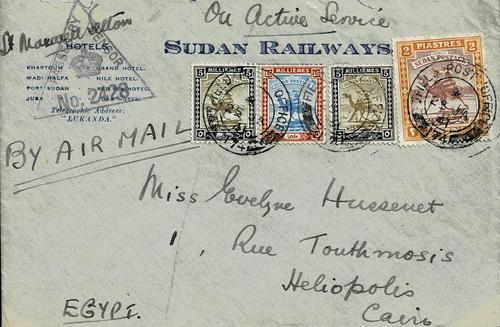 On Active Service
HOTELS
SUDAN RAILWAYS
KHARTOUM - GRAND HOTEL.
WADI HALFA - NILE HOTEL.
PORT SUDAN RED SEA HOTEL.
JUBA JUBA HOTEL.
Telegraphic Address:
"LUKANDA."
No. 248
15 MILLIEMES 15
15 MILLIEMES 15
15 MILLIEMES 15
2 PIASTRES 2
SUDAN POSTAGE
FIELD POST OFFICE
BY AIR MAIL
Miss Evelyne Hussenet
1, Rue Touthmosis
Heliopolis
Cairo
EGYPT.